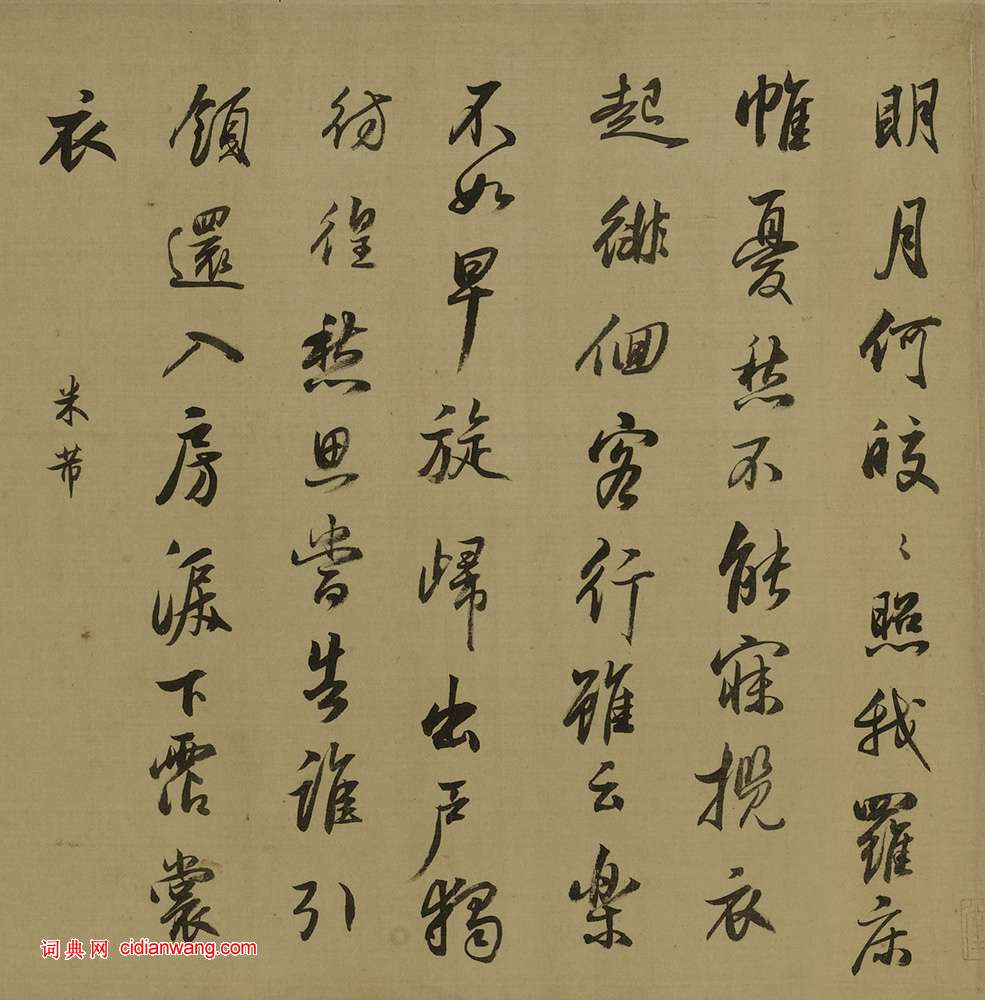 明月何皎々照我羅床
帷憂愁不能寐攬衣
起徘徊客行雖云樂
不如早旋歸出戶獨
彷徨愁思當告誰引
領還入房淚下霑裳
衣
米芾
词典网 cidianwang.com